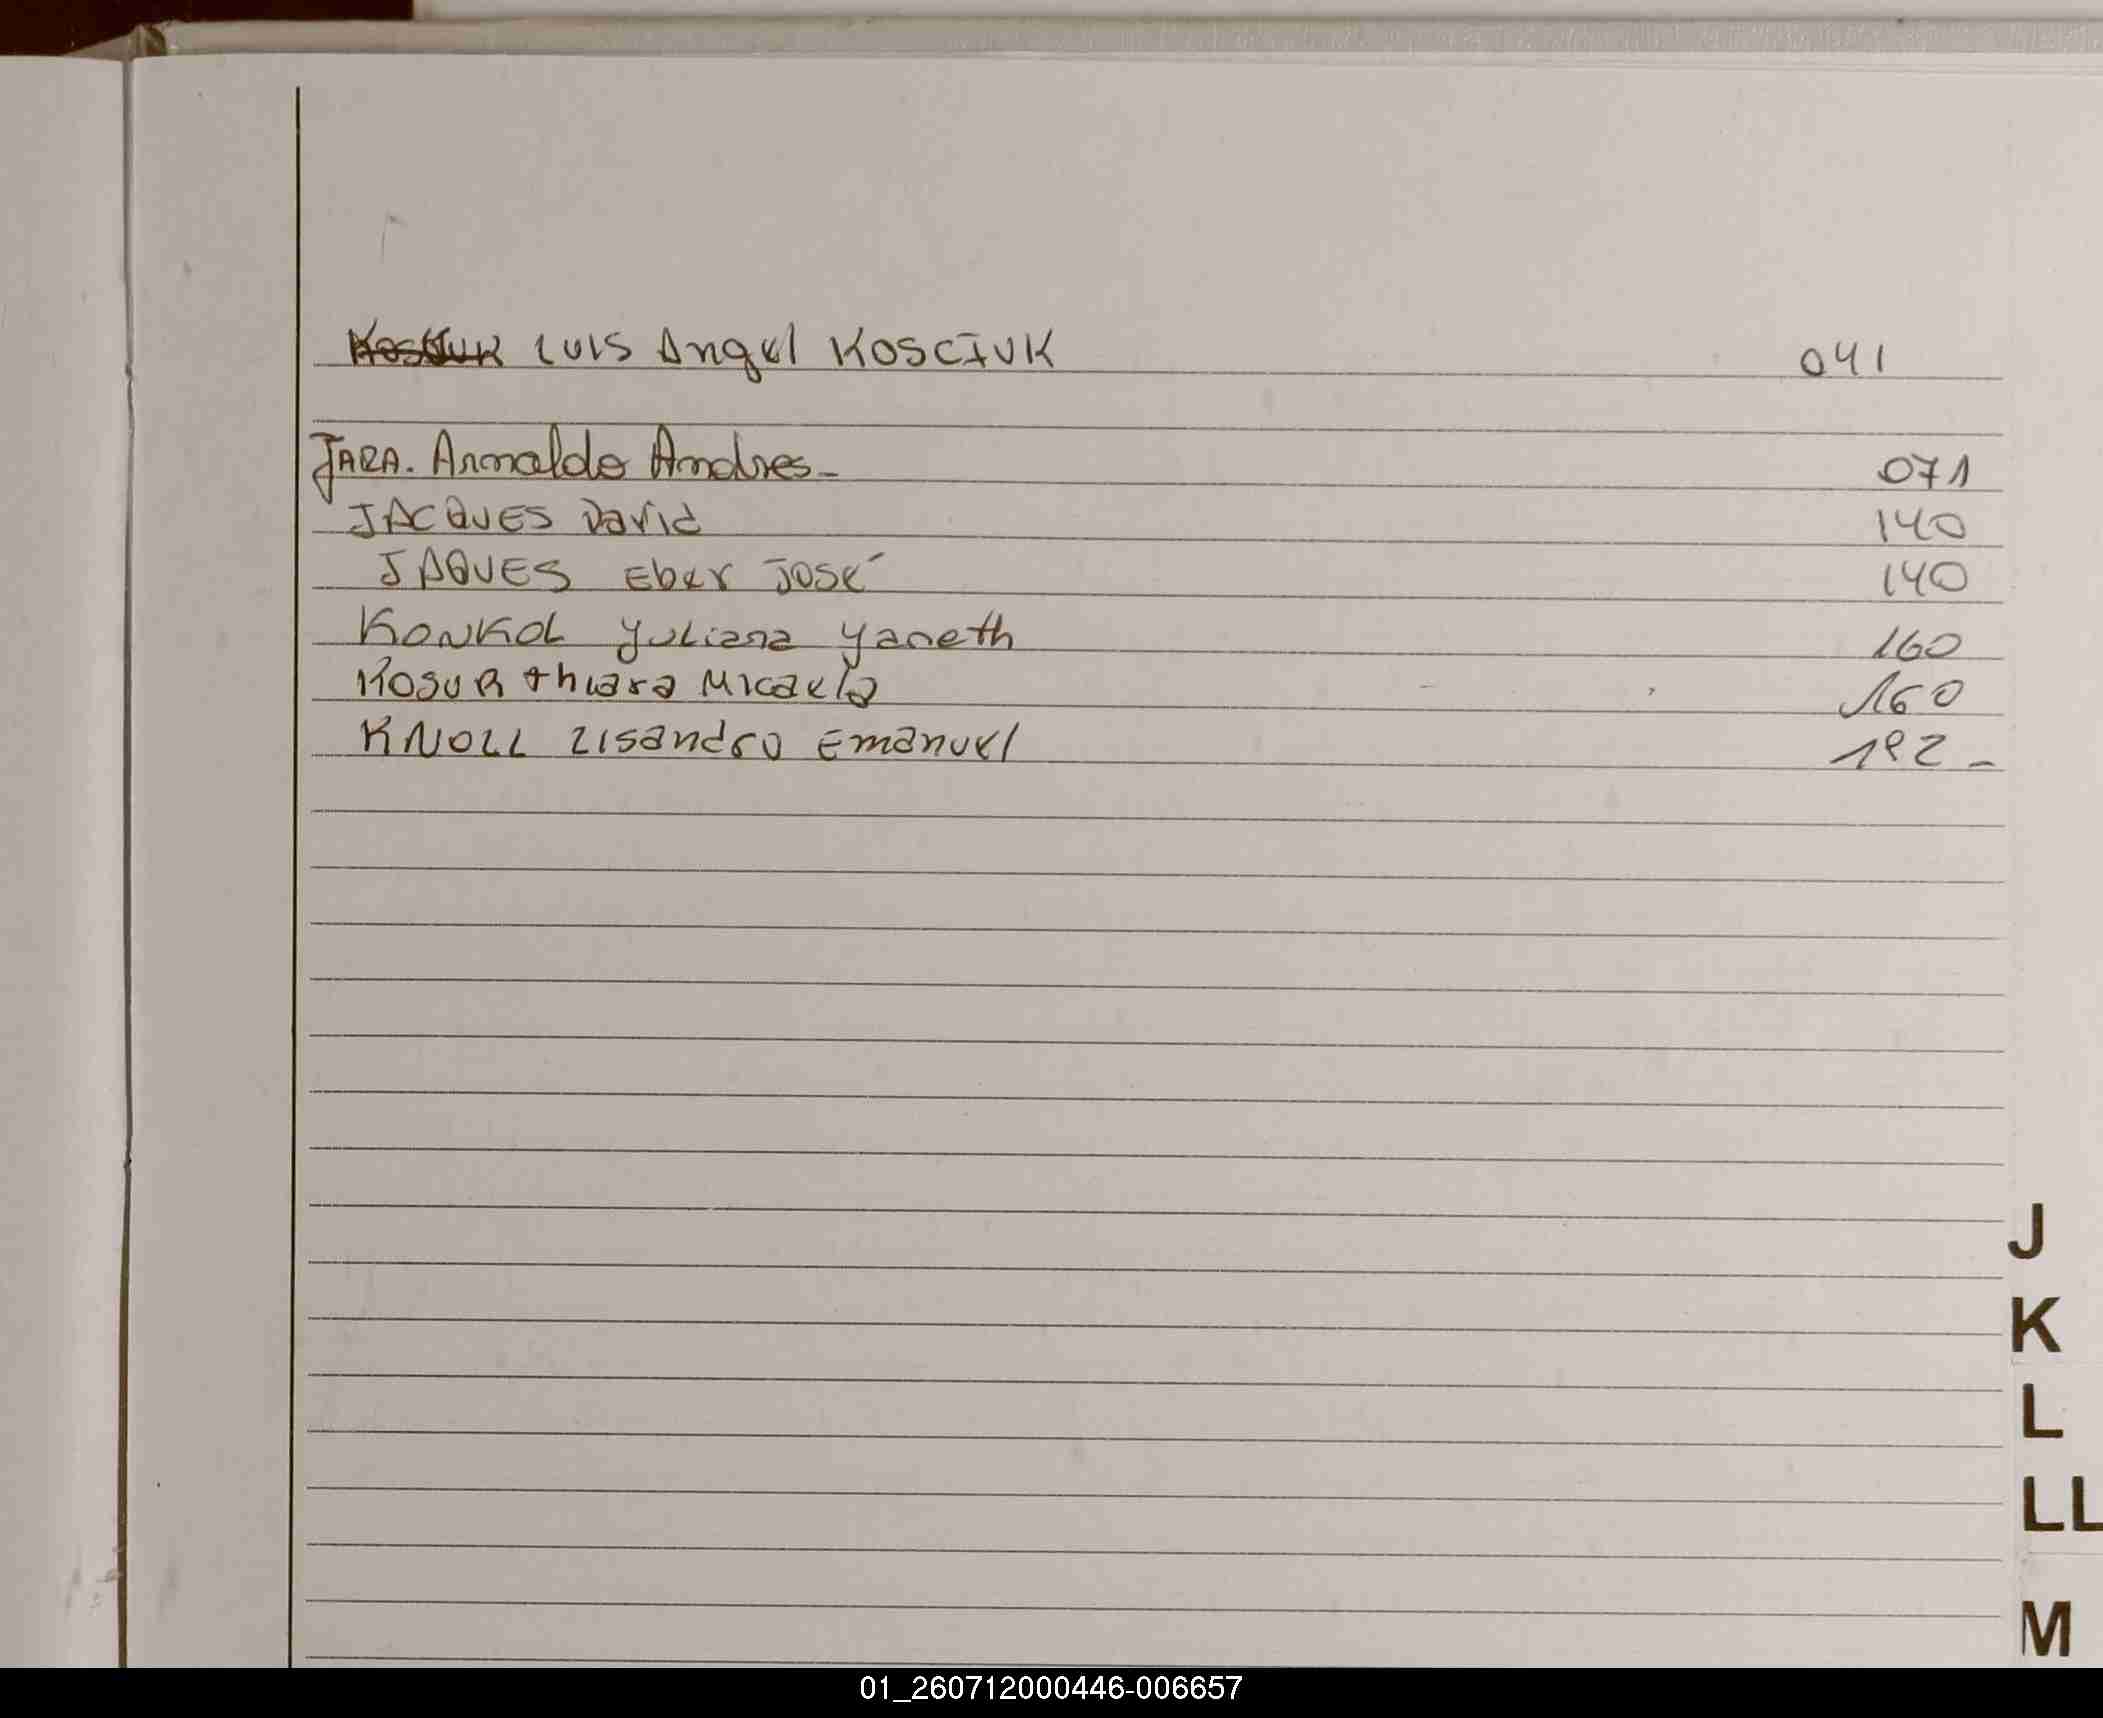 LUIS Angel KOSCIUK 041
JARA. Arnaldo Andres- 071
JACQUES David 140
JAQUES Eber José 140
KONKOL Yuliana Yaneth 160
KOSUR thiara Micaela 160
KNOLL Lisandro Emanuel 192-
J
K
L
LL
M
01_260712000446-006657